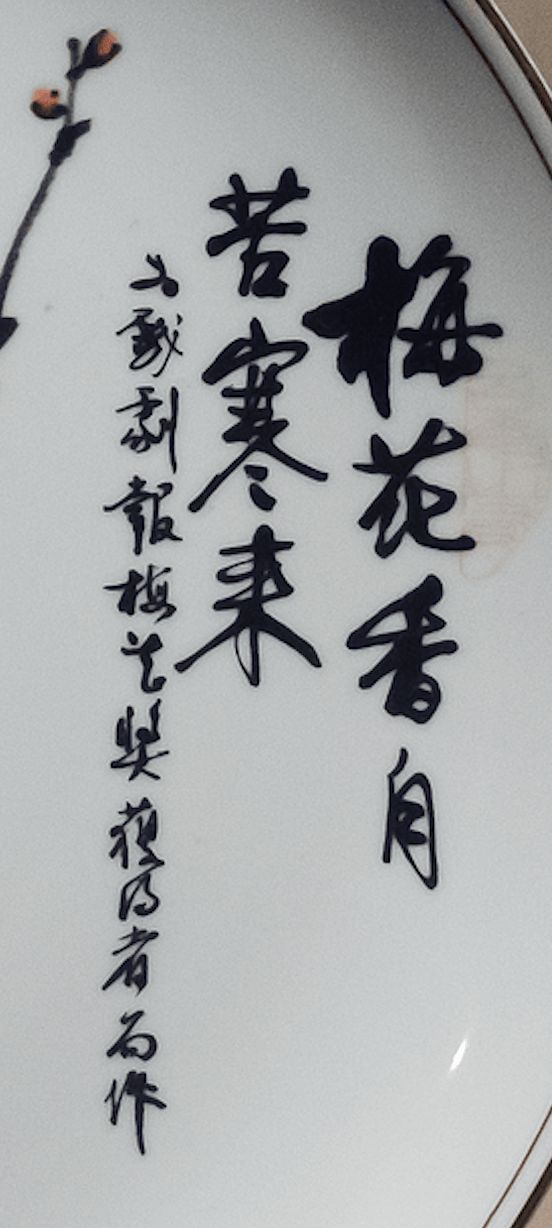 梅花香自
苦寒来
戲劇報梅花奬獲得者而作